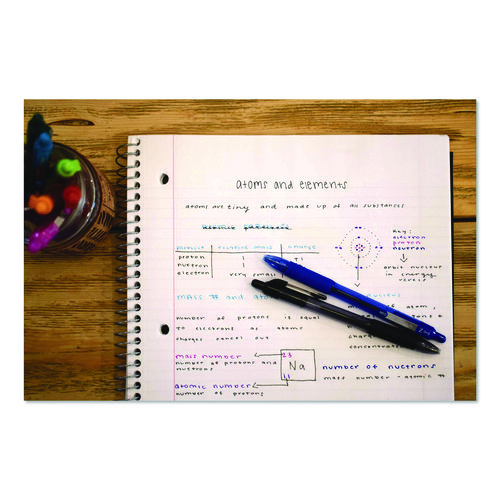 atoms and elements
atoms are tiny and made up of all substances
particle relative mass charge
proton 1 +1
neutron 1
electron very small
Key:
electron
proton
neutron
orbit nucleus
in energy
levels
mass # and atom
nucleus
number of protons is equal
to electrons so atomic
charges cancel out
atom,
concentrat
mass number
number of protons and
neutrons
atomic number
number of protons
23
Na
11
number of neutrons
mass number - atomic #